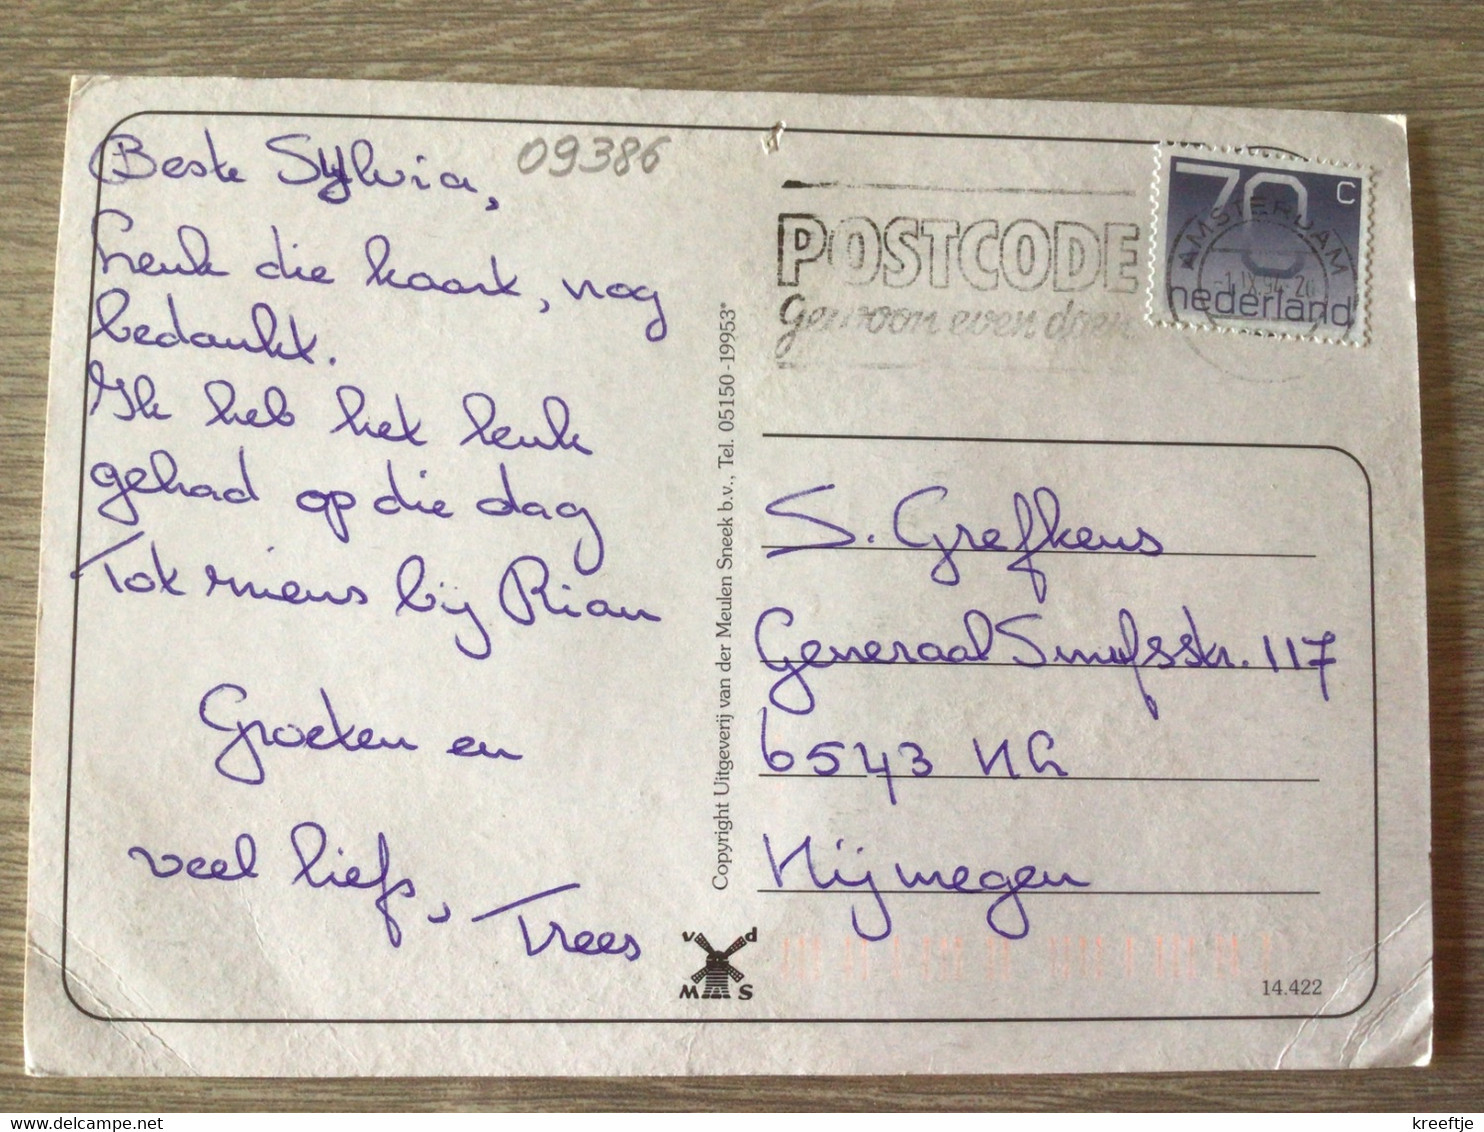 Beste Sylvia,
09386
Leuk die kaart, nog
bedankt.
Ik heb het leuk
gehad op die dag
Tot niens bij Rian
Groeten en
veel liefs,
Trees
Copyright Uitgeverij van der Meulen Sneek b.v., Tel. 05150-19953*
v d
M S
POSTCODE
Gewoon even doen
70 c
nederland
AMSTERDAM
-1.IX.94-20
S. Grefkens
Generaal Smutsstr. 117
6543
Nijmegen
14.422
delcampe.net
kreeftje